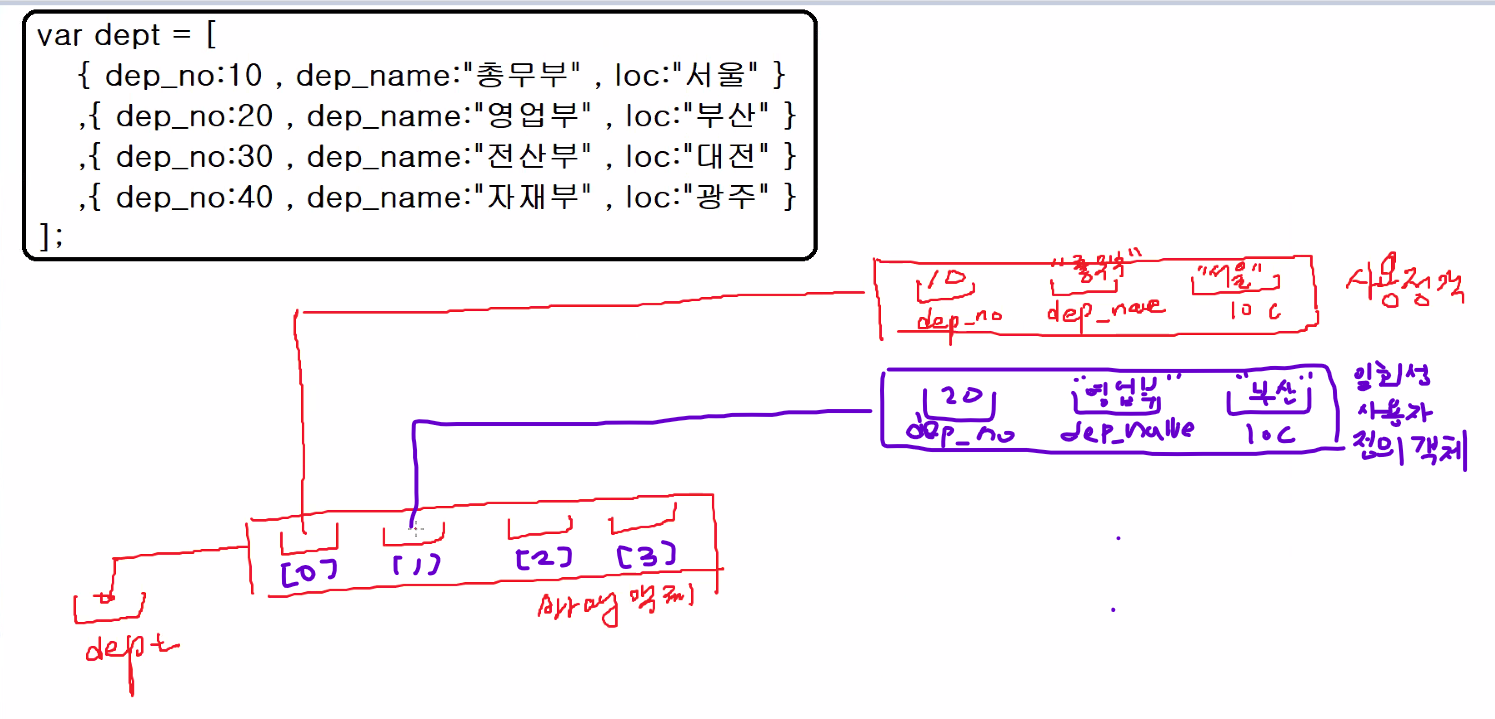 var dept = [
{ dep_no:10 , dep_name:"총무부" , loc:"서울" }
,{ dep_no:20 , dep_name:"영업부" , loc:"부산" }
,{ dep_no:30 , dep_name:"전산부" , loc:"대전" }
,{ dep_no:40 , dep_name:"자재부" , loc:"광주" }
];
10 "총무부" "서울"
dep_no dep_name loc
20 "영업부" "부산"
dep_no dep_name loc
일회성
사용자
정의 객체
[0] [1] [2] [3]
Array 객체
dept